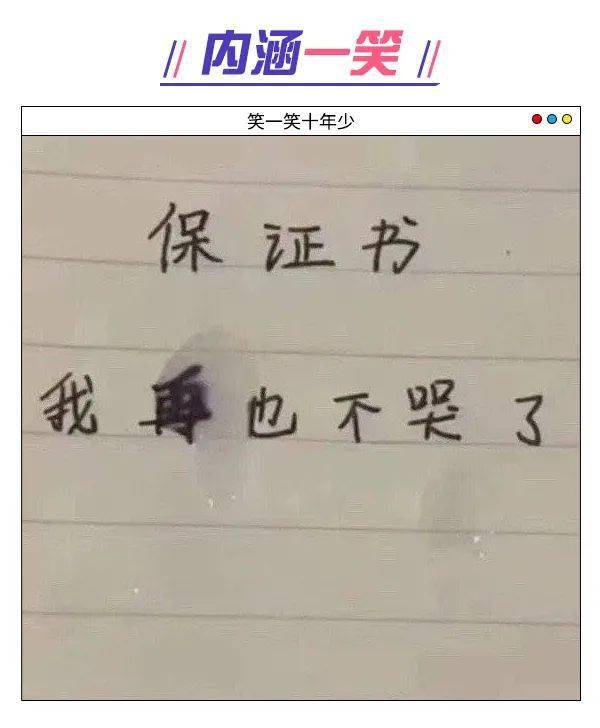 内涵一笑
笑一笑十年少
保证书
我再也不哭了